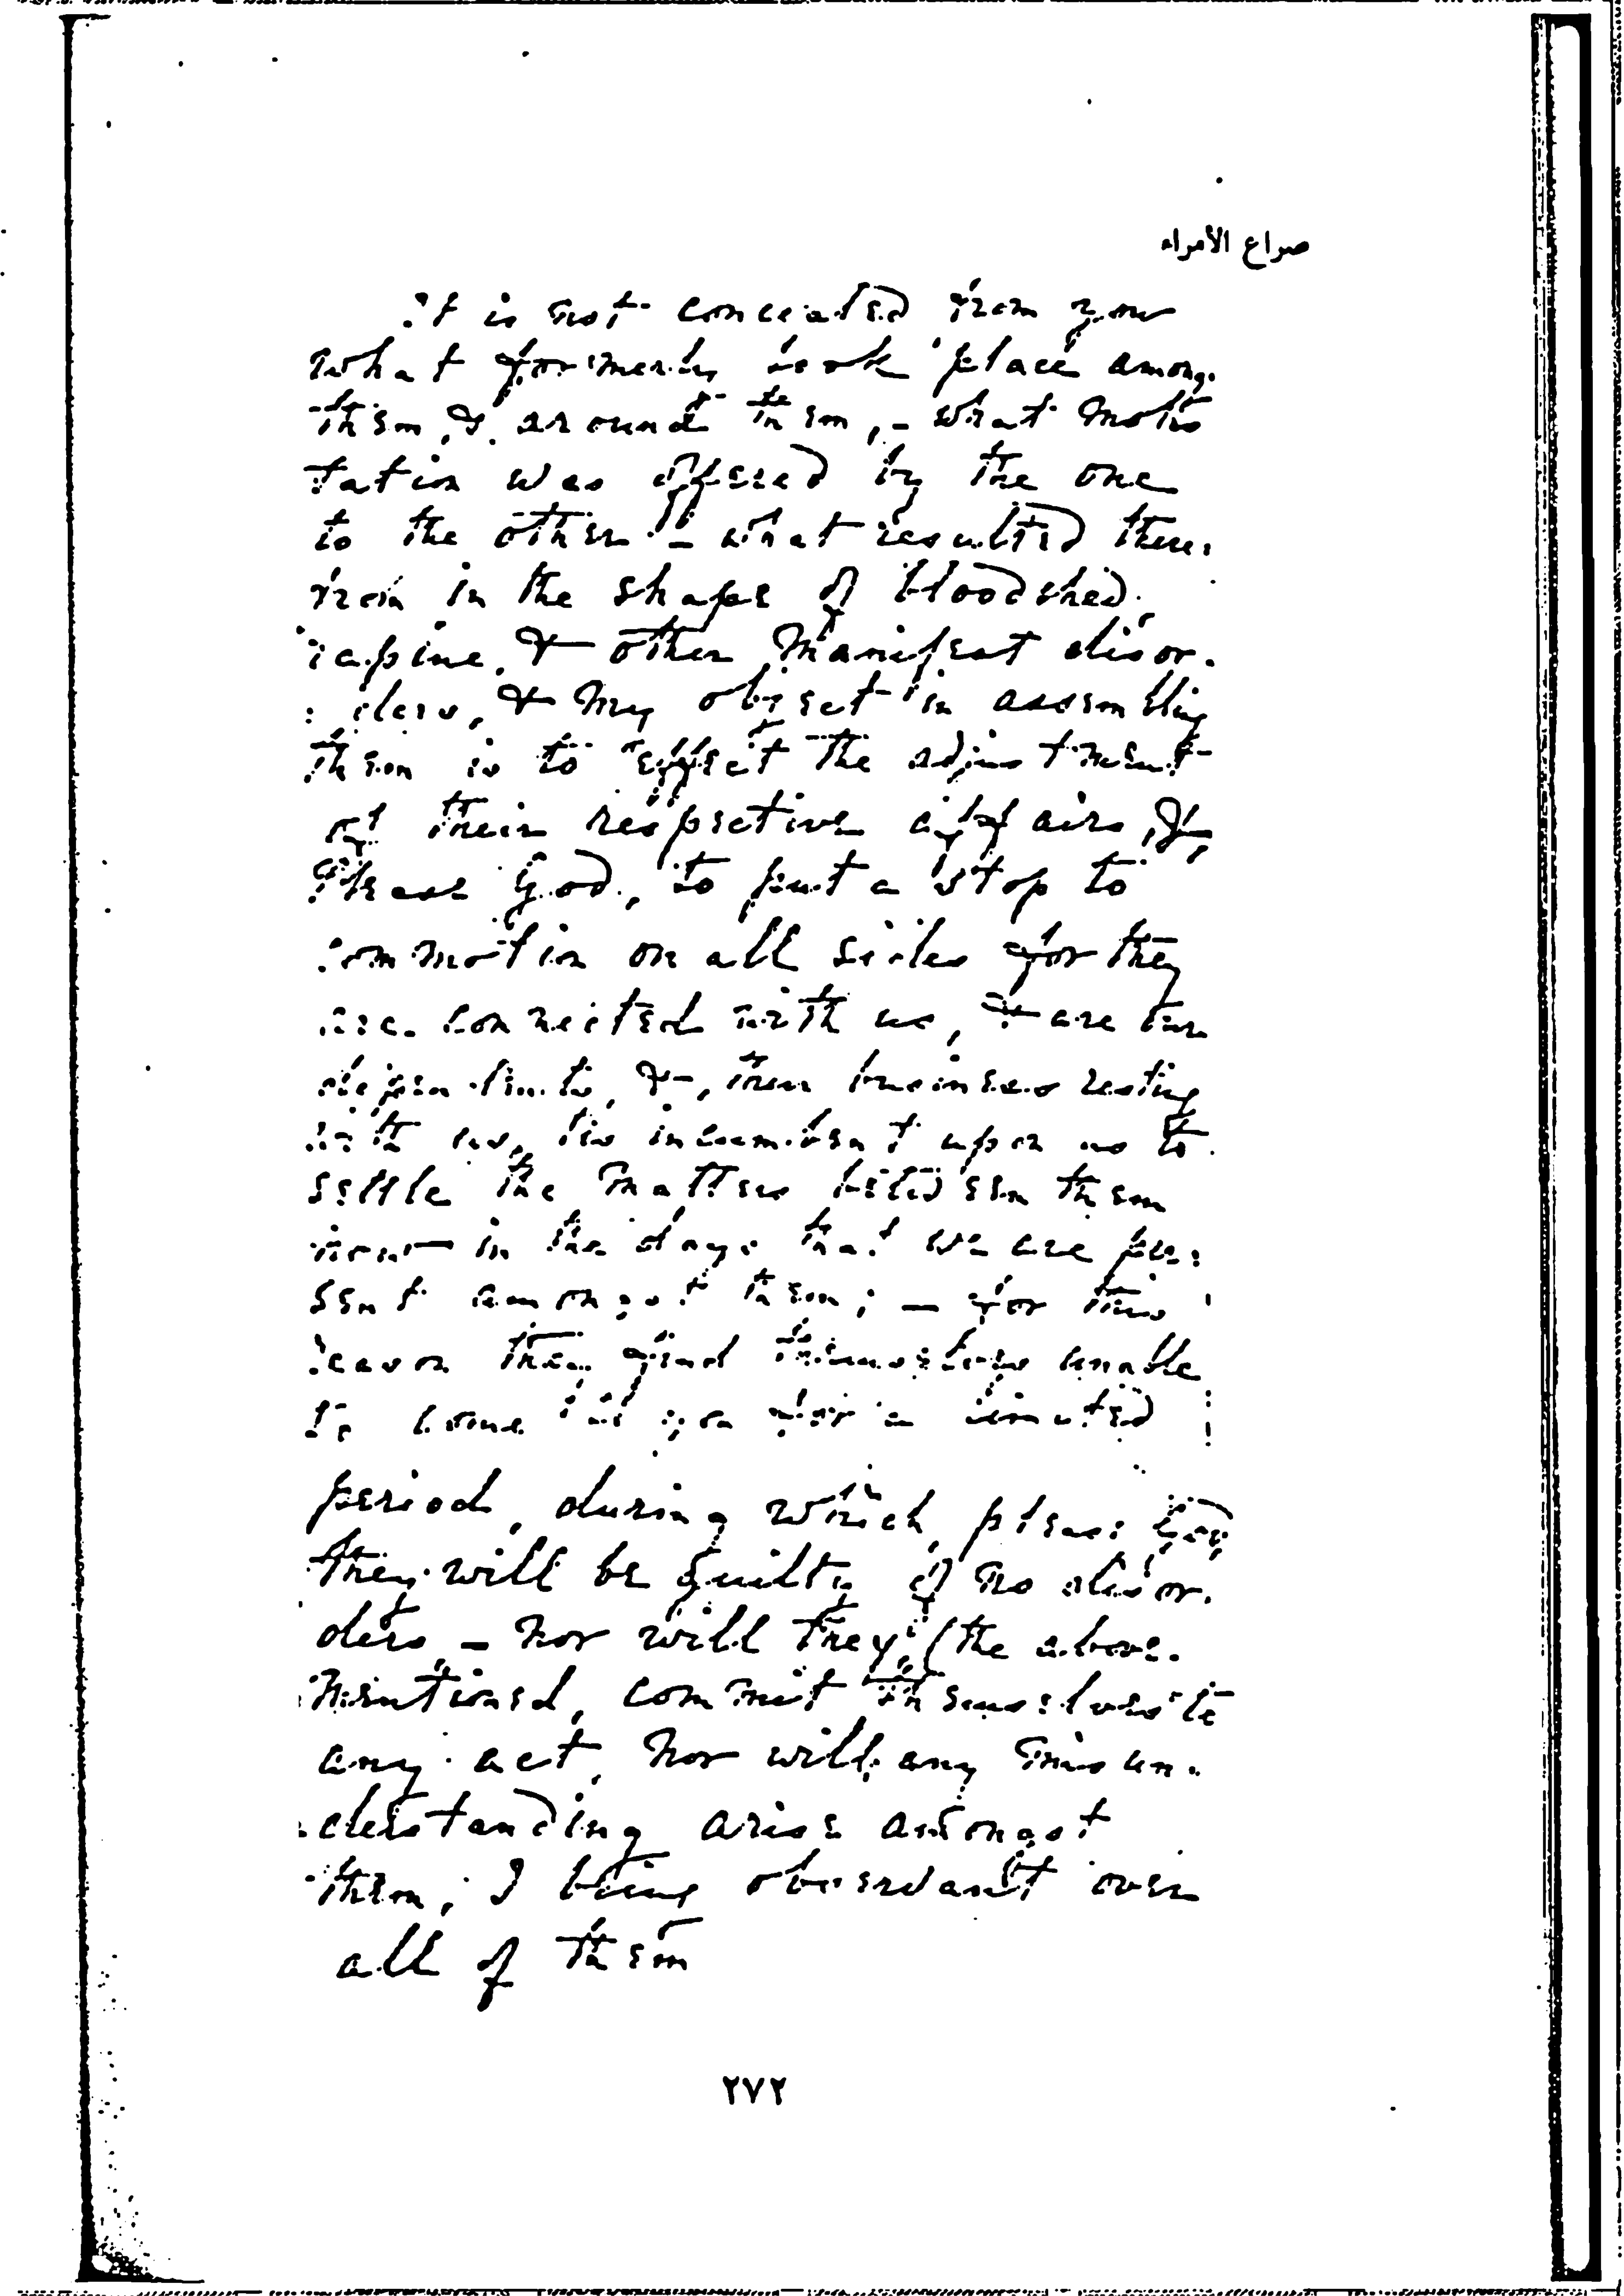 صراع الأمراء
it is not concealed from you
what formerly took place among.
them, & around them, - what moles
tation was offered by the one
to the other - what resulted there:
from in the shape of bloodshed.
rapine, & other manifest disor.
: ders, & my object in assembling
them is to effect the adjustment
of their respective affairs, &,
Please God, to put a stop to
commotion on all sides for they
are connected with us, & are our
dependents, &, their business resting
with us, tis incumbent upon us to
settle the matters between them
now in the days that we are pre:
sent amongst them; - for this
reason they find themselves unable
to come to you for a limited
period, during which, please God,
they will be guilty of no disor.
ders, - nor will they, (the above.
mentioned, commit themselves to
any act, nor will any misun.
derstanding arise amongst
them; I being observant over
all of them
٢٧٢